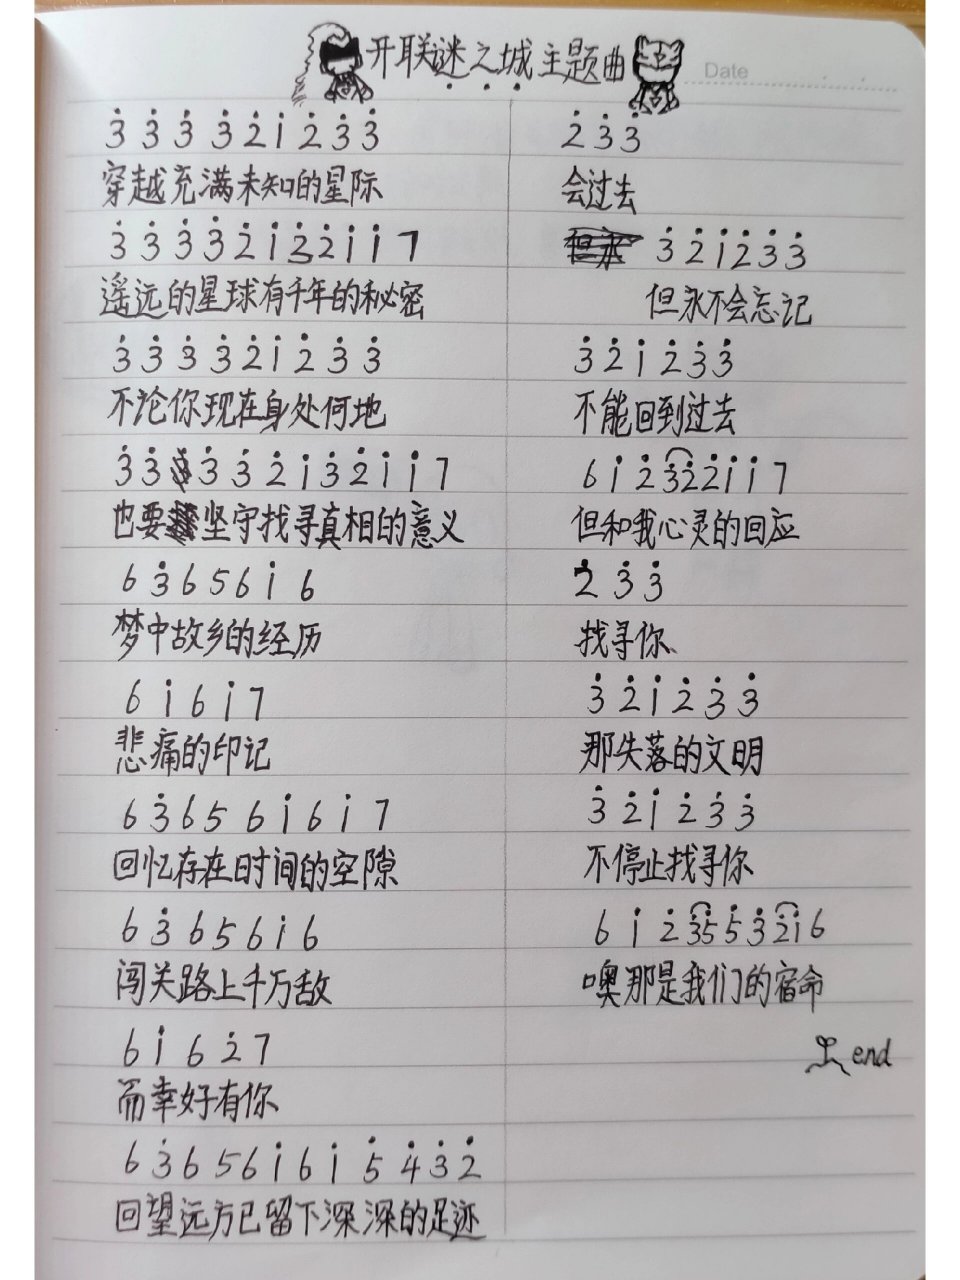 开联谜之城主题曲
Date
3̇ 3̇ 3̇ 3̇ 2̇ 1̇ 2̇ 3̇ 3̇
穿越充满未知的星际
3̇ 3̇ 3̇ 3̇ 2̇ 1̇ 3̇ 2̇ 1̇ 1̇ 7
遥远的星球有千年的秘密
3̇ 3̇ 3̇ 3̇ 2̇ 1̇ 2̇ 3̇ 3̇
不论你现在身处何地
3̇ 3̇ 3̇ 3̇ 2̇ 1̇ 3̇ 2̇ 1̇ 1̇ 7
也要坚守找寻真相的意义
6 3̇ 6 5 6 1̇ 6
梦中故乡的经历
6 1̇ 6 1̇ 7
悲痛的印记
6 3̇ 6 5 6 1̇ 6 1̇ 7
回忆存在时间的空隙
6 3̇ 6 5 6 1̇ 6
闯关路上千万敌
6 1̇ 6 2̇ 7
而幸好有你
6 3̇ 6 5 6 1̇ 6 1̇ 5̇ 4̇ 3̇ 2̇
回望远方已留下深深的足迹
2̇ 3̇ 3̇
会过去
3̇ 2̇ 1̇ 2̇ 3̇ 3̇
但永不会忘记
3̇ 2̇ 1̇ 2̇ 3̇ 3̇
不能回到过去
6 1̇ 2̇ 3̇ 2̇ 2̇ 1̇ 1̇ 7
但和我心灵的回应
2̇ 3̇ 3̇
找寻你
3̇ 2̇ 1̇ 2̇ 3̇ 3̇
那失落的文明
3̇ 2̇ 1̇ 2̇ 3̇ 3̇
不停止找寻你
6 1̇ 2̇ 3̇ 5̇ 5̇ 3̇ 2̇ 1̇ 6
噢那是我们的宿命
end